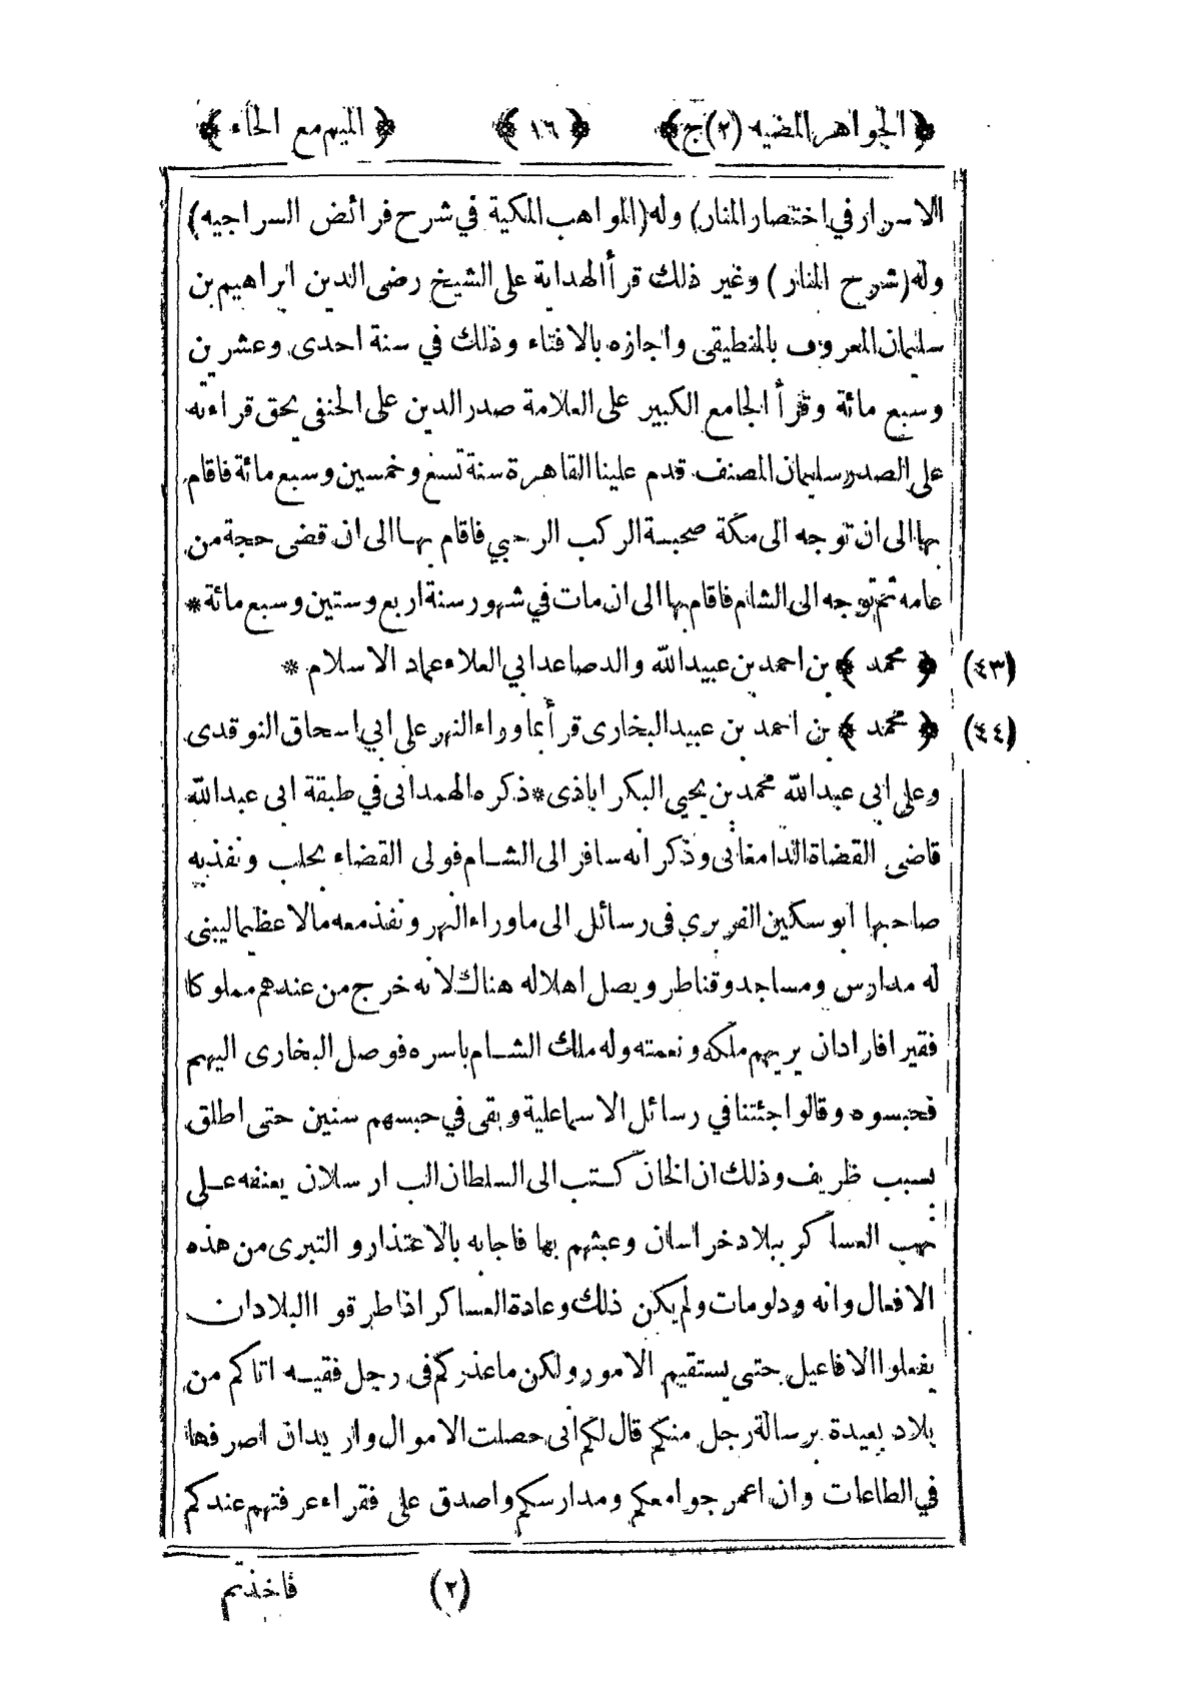 ﴿ الجواهر المضيه (٢) ج ﴾ ﴿ ١٦ ﴾ ﴿ الميم مع الحاء ﴾
الاسرار في اختصار المنار) وله (المواهب المكية في شرح فرائض السراجيه)
وله (شرح المنار) وغير ذلك قرأ الهداية على الشيخ رضى الدين ابراهيم بن
سليمان المعروف بالمنطيقى واجازه بالافتاء وذلك في سنة احدى وعشرين
وسبع مائة وقرأ الجامع الكبير على العلامة صدر الدين على الحنفي بحق قراءته
على الصدر سليمان المصنف قدم علينا القاهرة سنة تسع وخمسين وسبع مائة فاقام
بها الى ان توجه الى مكة صحبسة الركب الرحبي فاقام بها الى ان قضى حجة من
عامه ثم توجه الى الشام فاقام بها الى ان مات في شهور سنة اربع وستين وسبع مائة *
(٤٣) ﴿ محمد ﴾ بن احمد بن عبيد الله والد صاعد ابي العلاء عماد الاسلام *
(٤٤) ﴿ محمد ﴾ بن احمد بن عبيد البخارى قرأ بما وراء النهر على ابي اسحاق النوقدى
وعلى ابى عبد الله محمد بن يحيى البكراباذى * ذكره الهمدانى في طبقة ابى عبد الله
قاضى القضاة الدامغانى وذكر انه سافر الى الشام فولى القضاء بحلب ونفذ به
صاحبها ابو سكين الفربري فى رسائل الى ما وراء النهر ونفذ معه مالا عظيما ليبنى
له مدارس ومساجد وقناطر ويصل اهلا له هناك لانه خرج من عندهم مملوكا
فقيرا فاراد ان يريهم ملكه ونعمته وله ملك الشام باسره فوصل البخارى اليهم
فحبسوه وقالوا جئتنا في رسائل الاسماعلية وبقى في حبسهم سنين حتى اطلق
بسبب ظريف وذلك ان الخان كتب الى السلطان الب ارسلان يعنفه على
نهب العساكر ببلاد خراسان وعبثهم بها فاجابه بالاعتذار و التبرى من هذه
الافعال وانه ودلومات ولم يكن ذلك وعادة العساكر اذا طرقوا البلاد ان
يفعلوا الافاعيل حتى يستقيم الامور ولكن ما عذركم فى رجل فقيه اتاكم من
بلاد بعيدة برسالة رجل منكم قال لكم انى حصلت الاموال واريد ان اصرفها
في الطاعات وان اعمر جوامعكم ومدارسكم واصدق على فقراء عرفتهم عندكم
(٢) فاخذتم